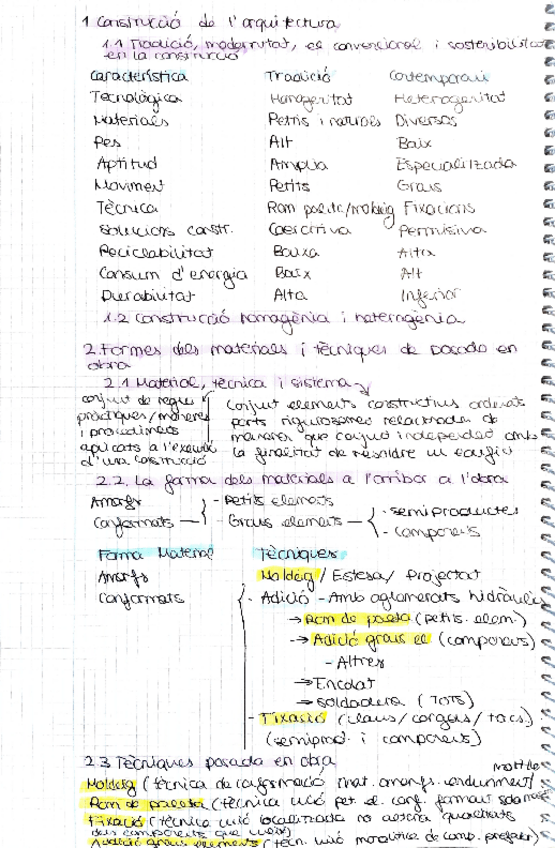 1 Construcció de l'arquitectura
1.1 Tradició, modernitat, el convencional i sostenibilitat
en la construcció
Característica Tradició Contemporani
Tecnològica Homogeneïtat Heterogeneïtat
Materials Petris i naturals Diversos
Pes Alt Baix
Aptitud Àmplia Especialitzada
Moviment Petits Grans
Tècnica Ram paleta/moldeig Fixacions
Solucions constr. Coercitiva Permisiva
Reciclabilitat Baixa Alta
Consum d'energia Baix Alt
Durabilitat Alta Inferior
1.2 Construcció homogènia i heterogènia
2. Formes dels materials i tècniques de posada en
obra
2.1 Material, tècnica i sistema
conjunt de regles
pràctiques/maneres
i procediments
aplicats a l'execució
d'una construcció
Conjunt elements constructius ordenats
ports rigurosament relacionats de
manera que conjunt independent amb
la finalitat de un edifici
2.2. La forma dels materials a l'arribar a l'obra
Amorfs - Petits elements
Conformats - Grans elements - semiproductes
- components
Forma Material Tècniques
Amorfs Moldeig / Estesa / Projectat
Conformats - Adició - Amb aglomerats hidràulics
→ Ram de paleta (petits. elem.)
→ Adició grans el (components)
- Altres
→ Encolat
→ soldadura (TOTS)
- Fixació (claus/cargols/tacs.)
(semiprod. i components)
2.3 Tècniques posada en obra
Moldeig (tècnica de conformació mat. amorfs. enduriment)
Ram de paleta (tècnica unió pet. el. conf. formant
Fixació (tècnica unió localitzada no altera qualitats
dels components que uneix)
Adició grans elements (tècn. unió monolítica de comp. prefabr)